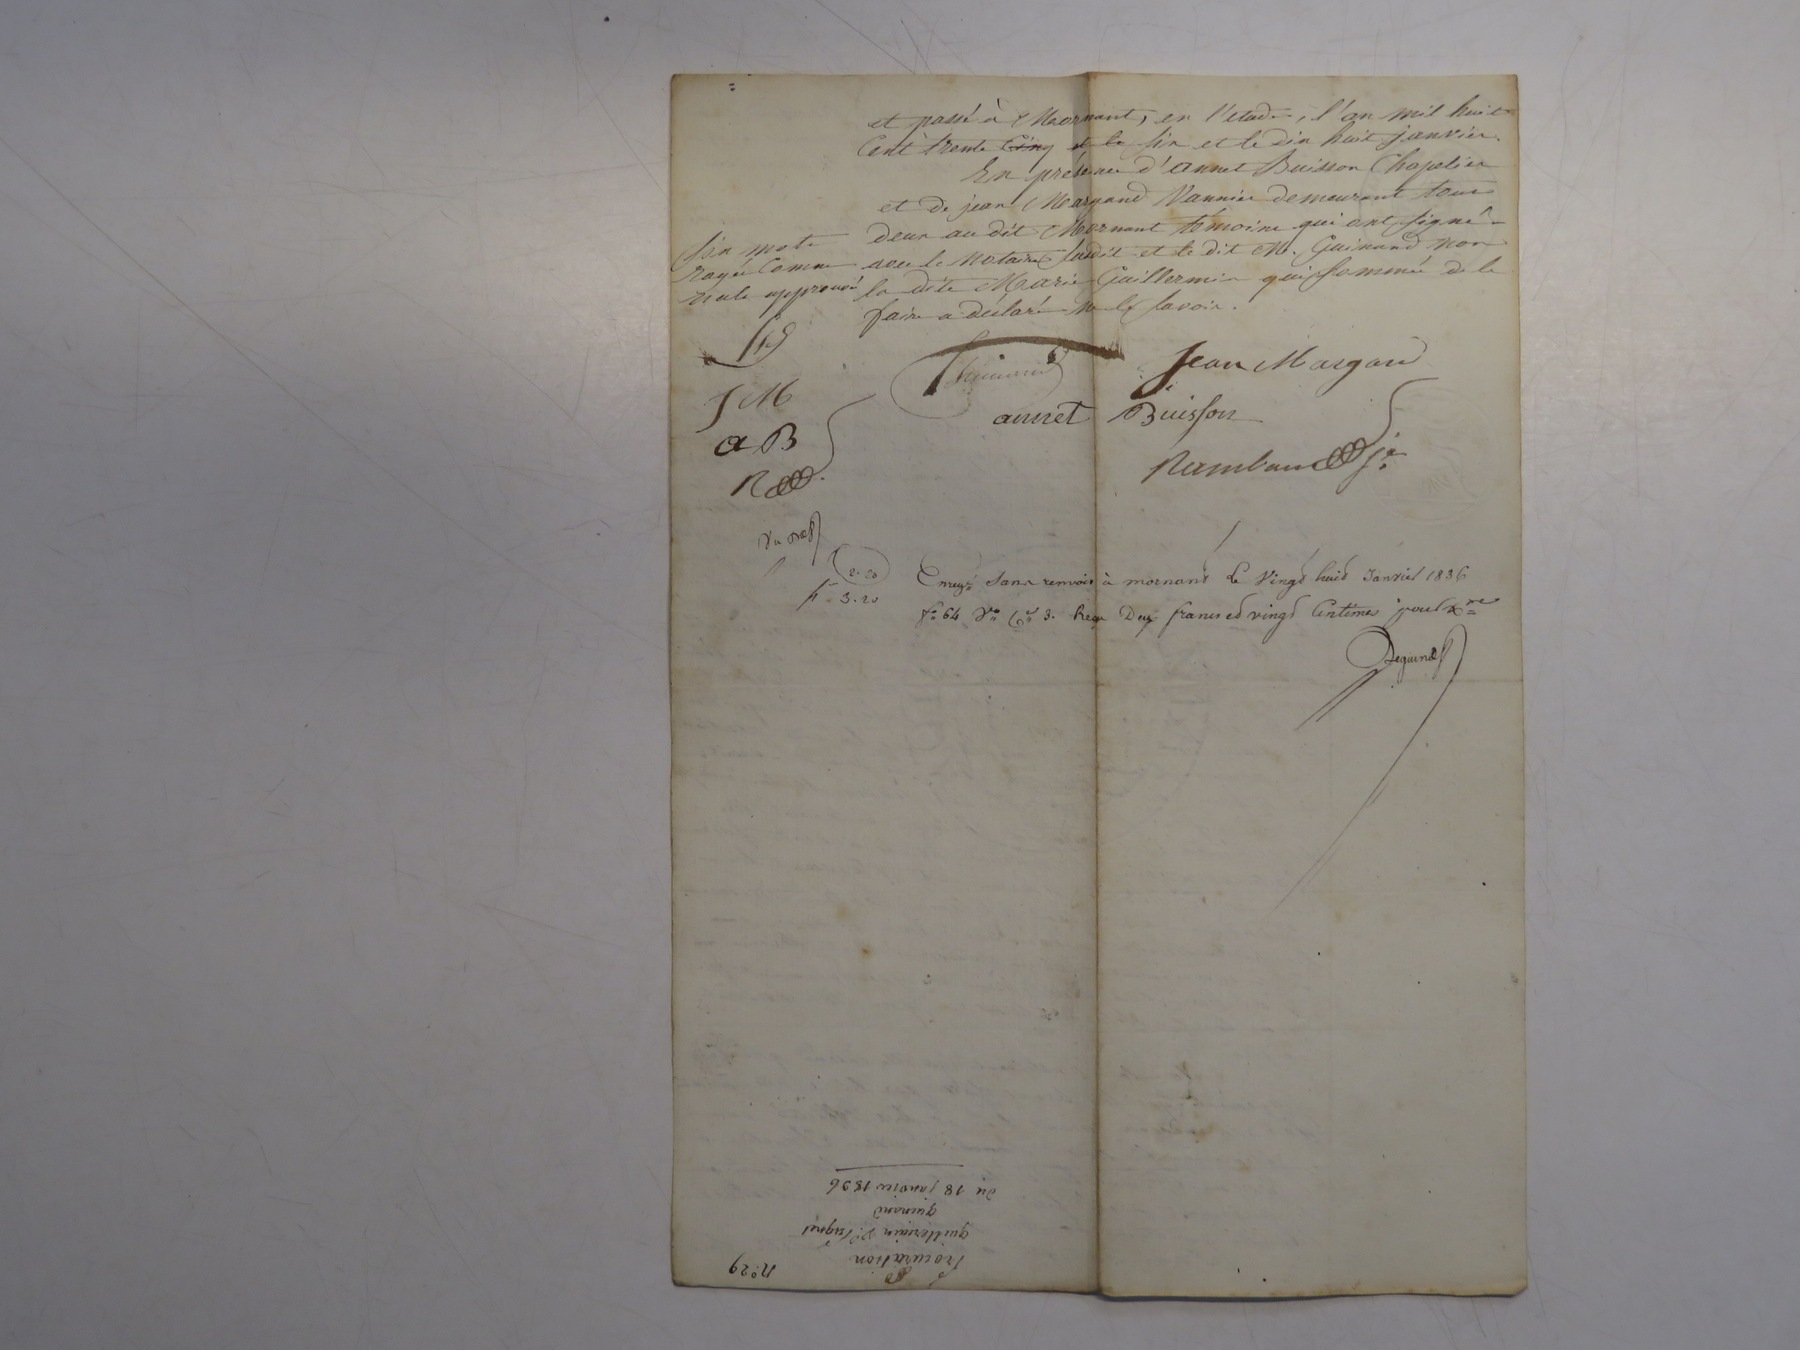 et passé à Mornant, en l'etude, l'an mil huit
Cent trente Cinq et le six et le dix huit janvier.
En présence d'annet Buisson Chapelier
et de jean Margand Vannier demeurant tous
deux au dit Mornant témoins qui ont signé
avec le Notaire susdit et le dit M. Guinand non
la dite Marie Guillermin qui sommée de le
faire a déclaré ne le savoir.
Six mots
rayés Comme
nuls approuvé
J M
a B
R
Guinand
Jean Margand
annet Buisson
Rambaud je
2.20
3.20
Enregé Sans renvoi à mornant Le Vingt huit Janvier 1836
fo 64 Vo Ce 3. Reçu Deux francs et vingt Centimes pour Xme
No 29
Procuration
guillermin Ve
guinand
du 18 janvier 1836